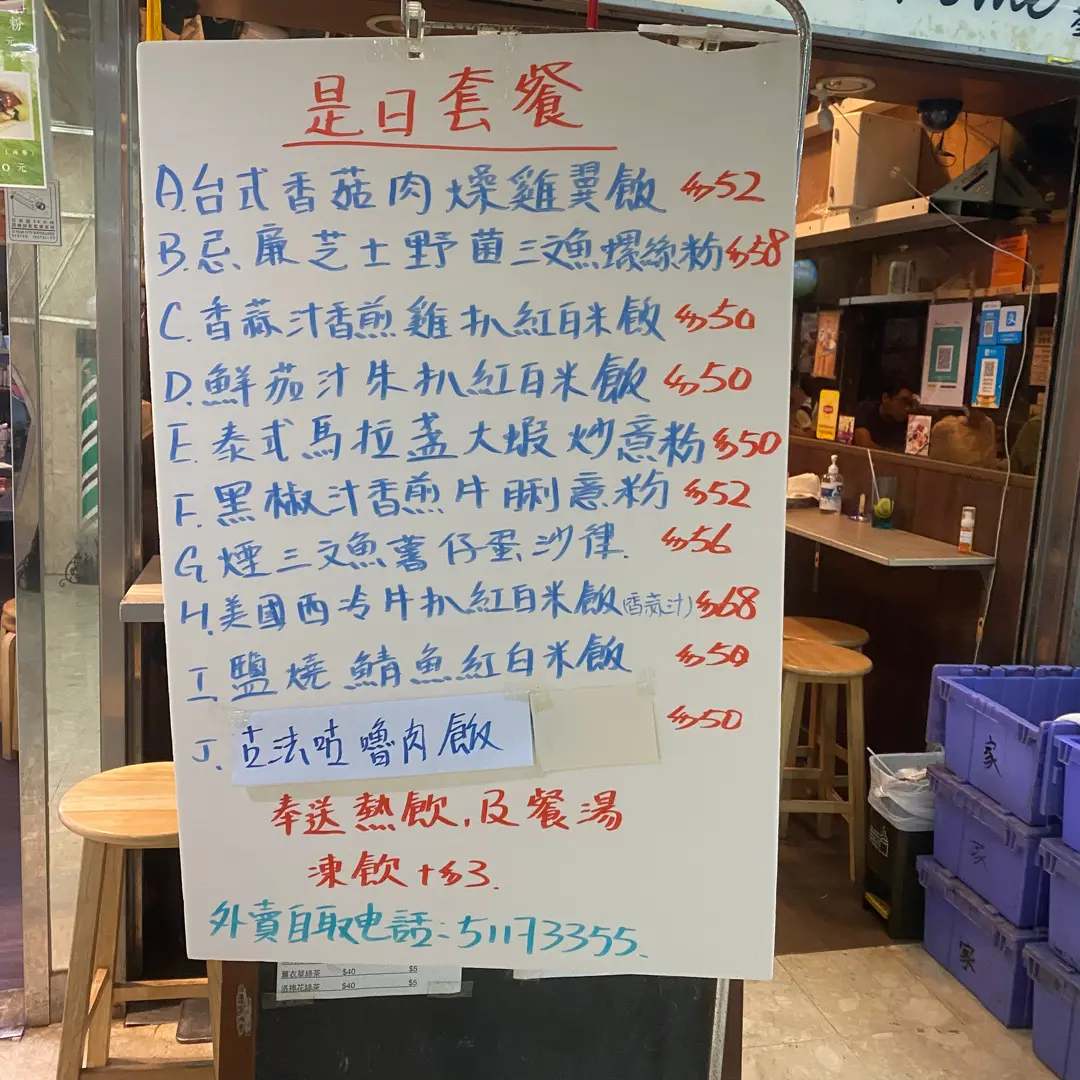 是日套餐
A.台式香菇肉燥雞翼飯 $52
B.忌廉芝士野菌三文魚螺絲粉 $58
C.香蒜汁香煎雞扒紅白米飯 $50
D.鮮茄汁朱扒紅白米飯 $50
E.泰式馬拉盞大蝦炒意粉 $50
F.黑椒汁香煎牛脷意粉 $52
G.煙三文魚薯仔蛋沙律. $56
H.美國西冷牛扒紅白米飯(香蒜汁) $68
I 鹽燒鯖魚紅白米飯 $50
J. 古法咕嚕肉飯 $50
奉送熱飲,及餐湯
凍飲+$3.
外賣自取电話:51173355.
薰衣草綠茶 $40 $5
洛神花綠茶 $40 $5
家
家
家